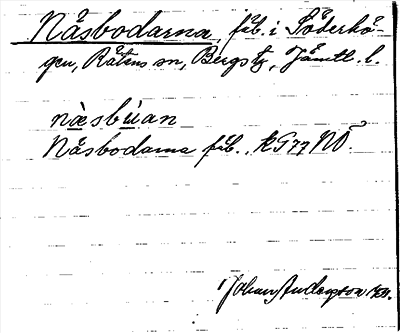 Nåsbodarna, fäb. i Söderhö-
gen, Rätans sn, Bergs tg, Jämtl. l.
nàsbúan
Nåsbodarna fäb., kG77NÖ.
Johan Anderson